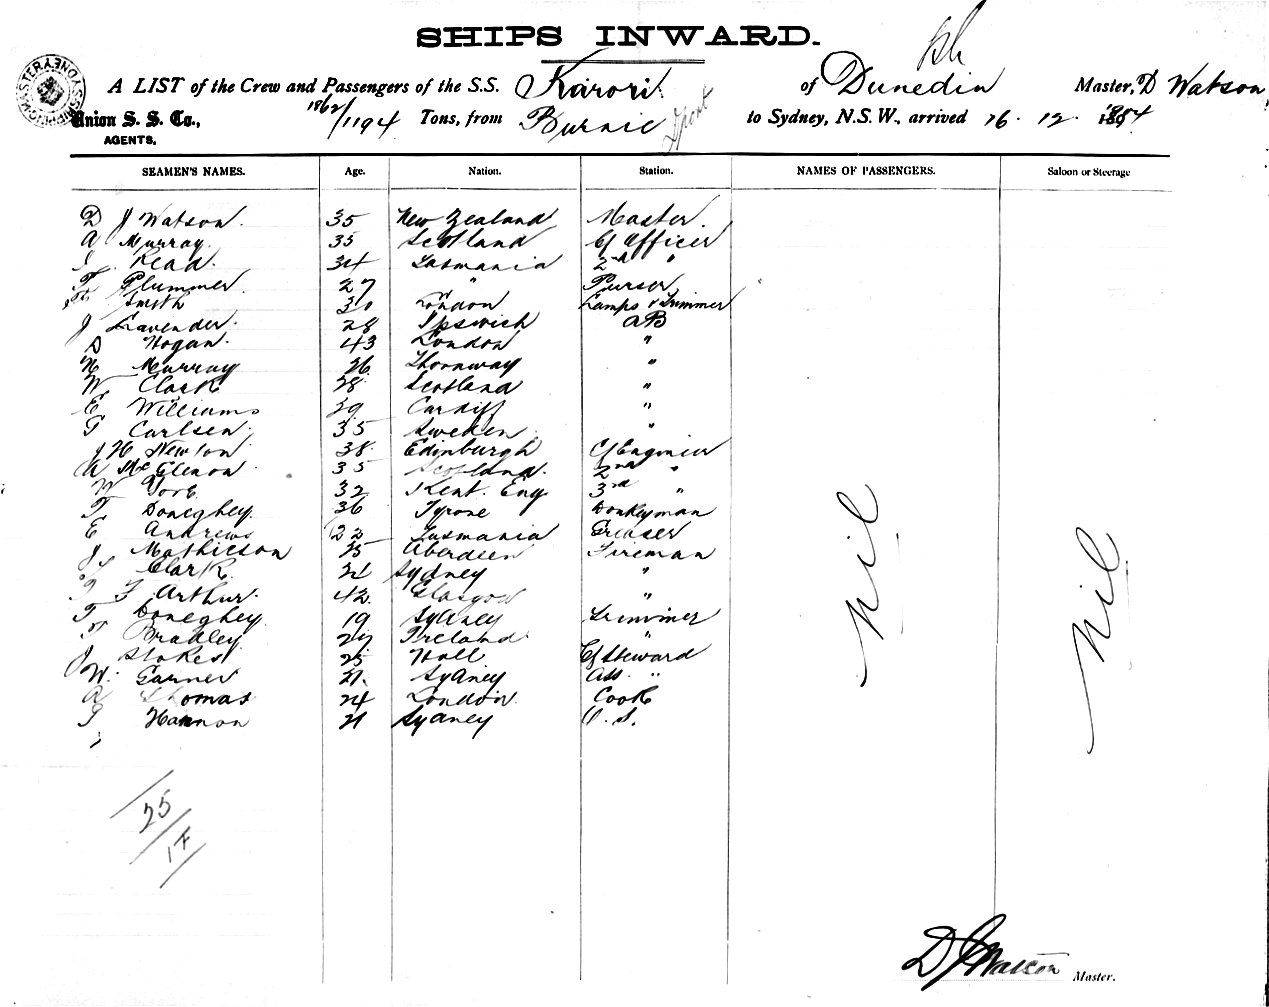 SHIPS INWARD.
A LIST of the Crew and Passengers of the S.S. Karori of Dunedin Master, D Watson
Union S. S. Co., 1862/1194 Tons, from Burnie to Sydney, N.S.W., arrived 16. 12. 1904
AGENTS.
SEAMEN'S NAMES. Age. Nation. Station. NAMES OF PASSENGERS. Saloon or Steerage
D J Watson 35 New Zealand Master
A Murray 35 Scotland Cf Officer
Read 34 Tasmania 2nd "
Plummer 27 " Purser
Smith 30 London Lamps & Trimmer
J Lavender 28 Ipswich AB
D Hogan 43 London "
N Murray 26 "
W Clark 28 Scotland "
E Williams 39 Cardiff "
Carlsen 35 Sweden "
J H Newton 38 Edinburgh Cf Engineer
A McGlenon 35 Scotland 2nd "
W 32 Kent. Eng 3rd "
T Doneghey 36 Tyrone Donkeyman
E Andrews 22 Tasmania Greaser
J Mathieson 25 Aberdeen Fireman
Clark Sydney "
Arthur 42 Glasgow "
T Doneghey 19 Sydney Trimmer
Bradley 27 Ireland "
J Stokes 25 Hull Cf Steward
W. Garner 21 Sydney Ass "
A Thomas 24 London Cook
Hannon 21 Sydney O.S.
Nil Nil
25
17
D J Watson Master.